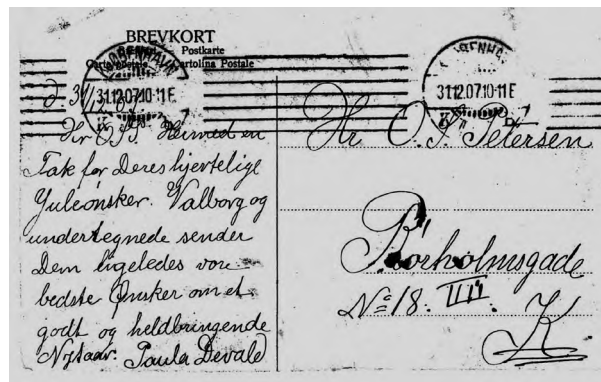 BREVKORT
Postkarte
Carte postale Cartolina Postale
KØBENHAVN
31.12.07.10-11 E
KØBENHAVN
31.12.07.10-11 E
d. 31/12 07.
Hr O.S.S. Herved en
Tak for Deres hjertelige
Juleönsker. Valborg og
undertegnede sender
Dem ligeledes vore
bedste Ønsker om et
godt og heldbringende
Nytaar. Paula Devald
Hr O. S. Petersen
Borholmsgade
No 18. IIII.
K